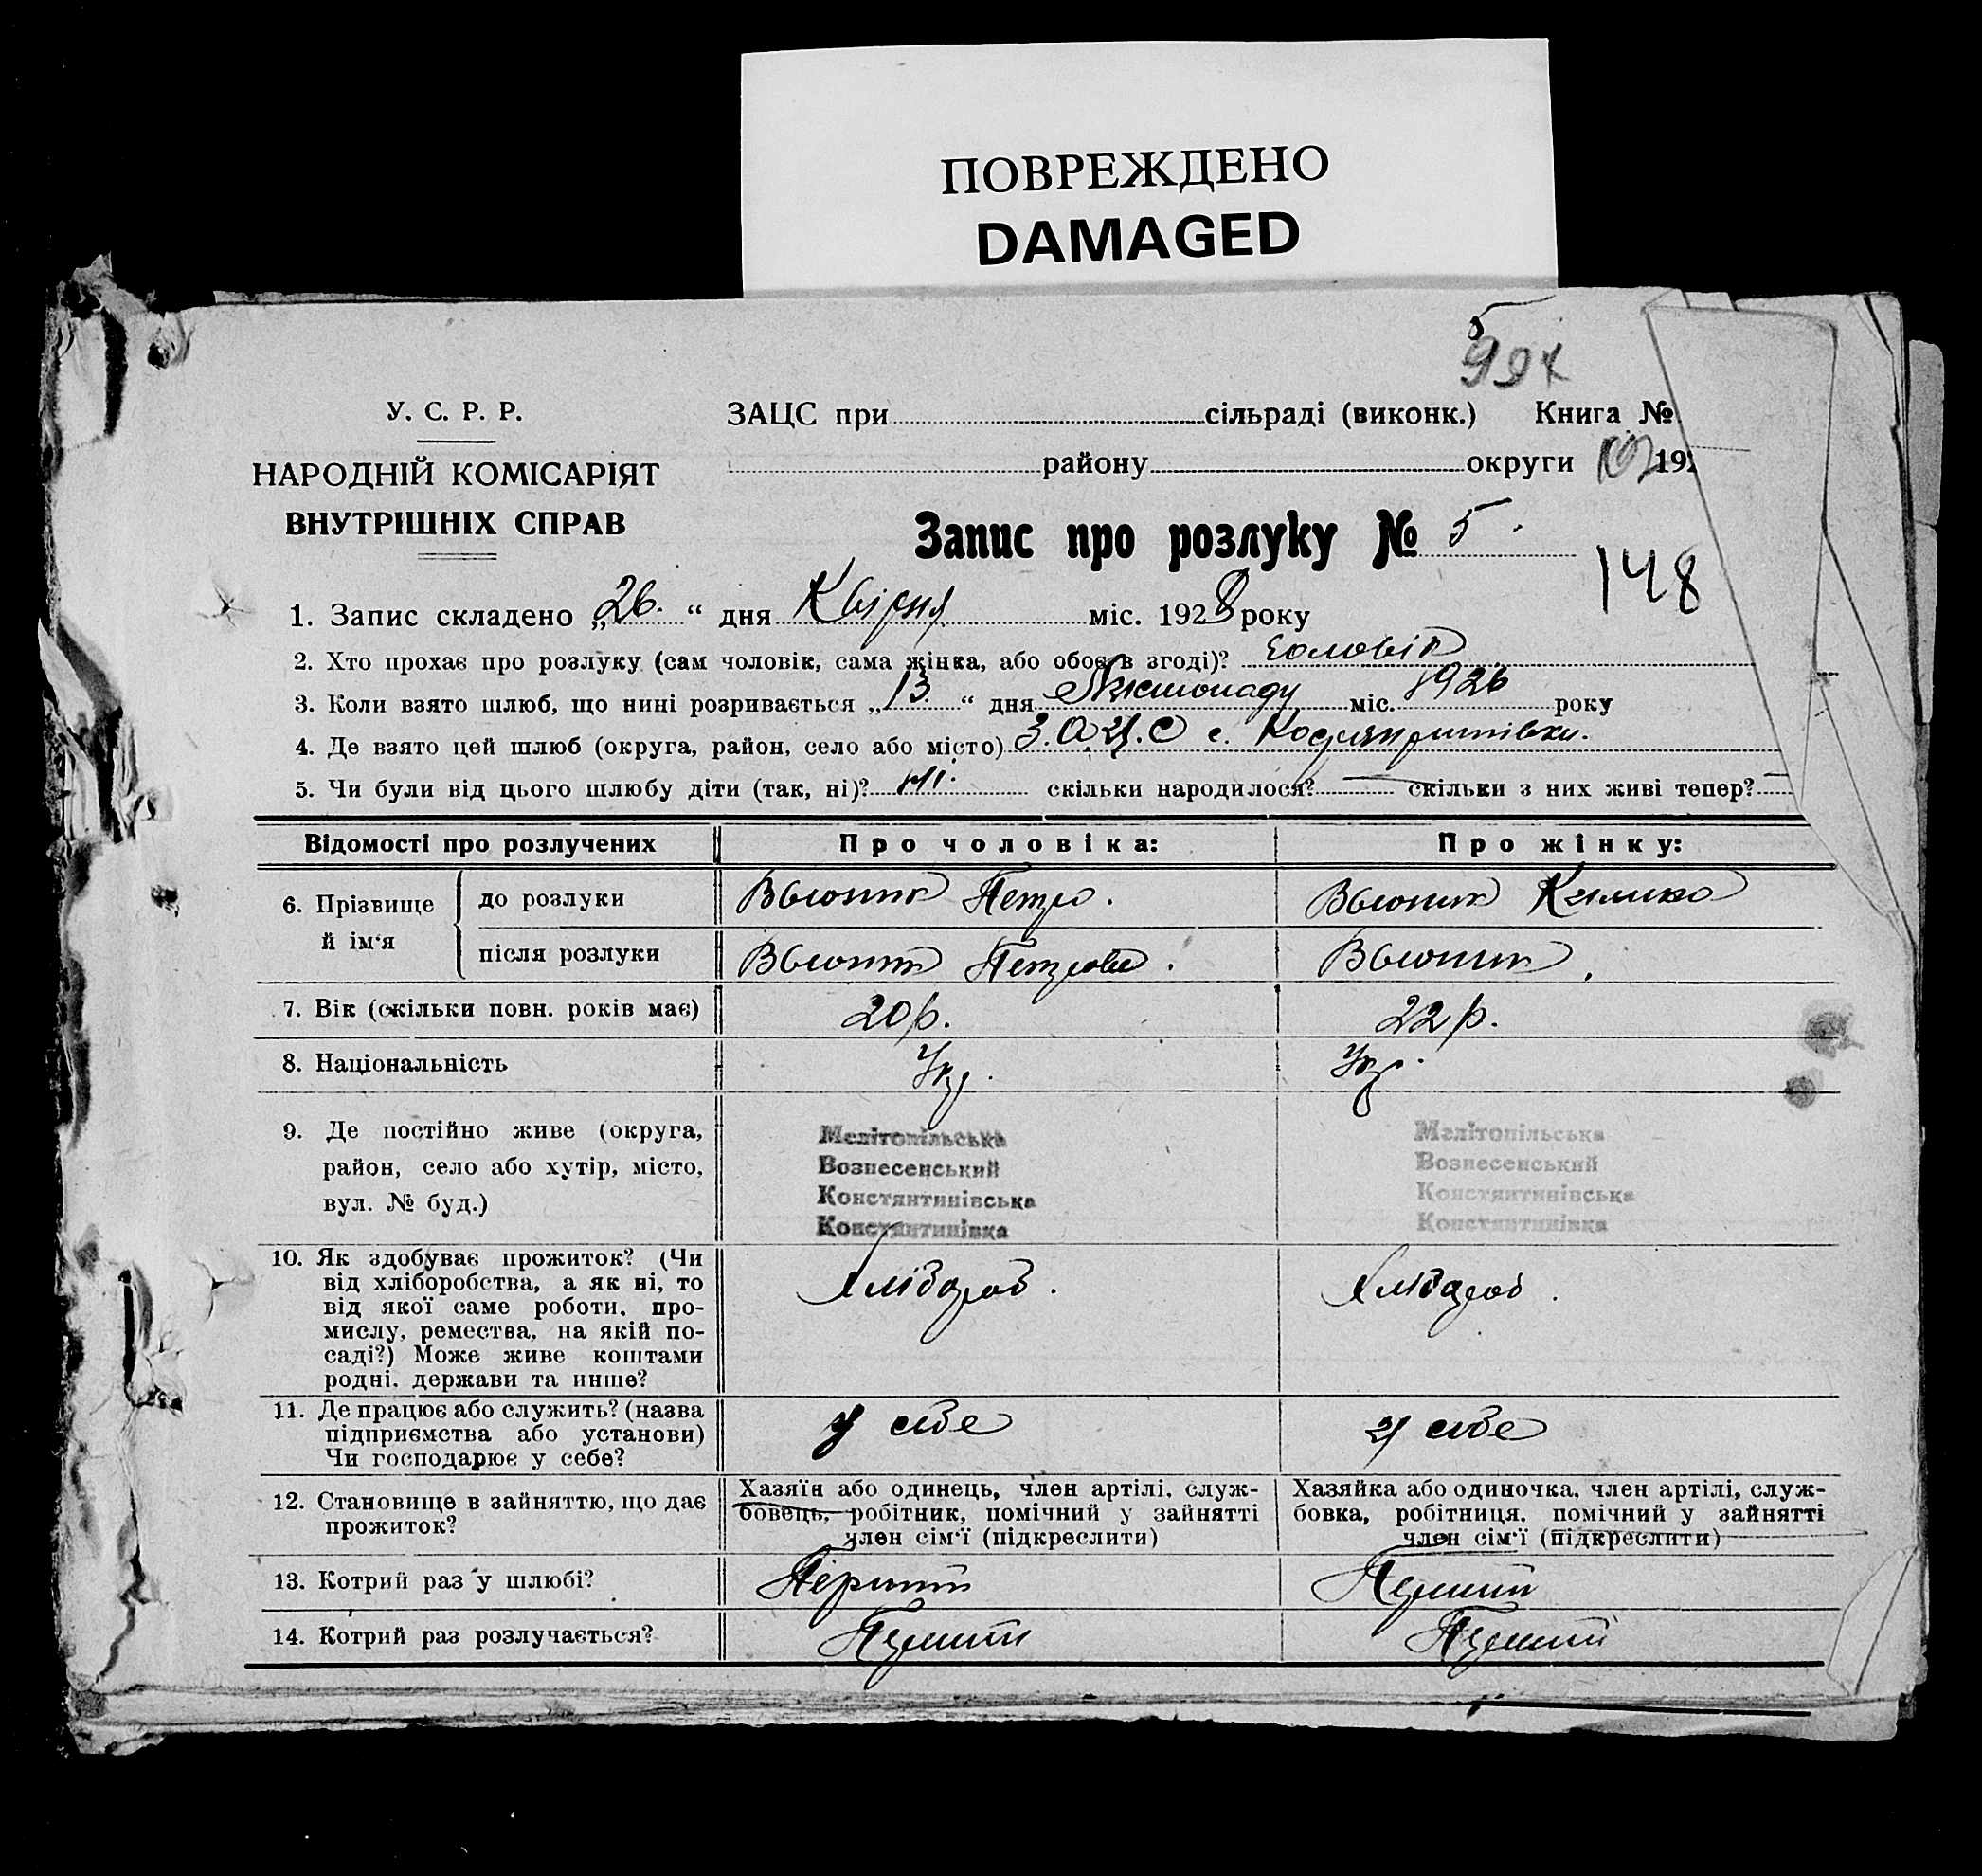 ПОВРЕЖДЕНО
DAMAGED
У. С. Р. Р.
НАРОДНІЙ КОМІСАРІЯТ
ВНУТРІШНІХ СПРАВ
ЗАЦС при сільраді (виконк.) Книга №
району округи 192
Запис про розлуку № 5.
148
1. Запис складено „26.“ дня Квітня міс. 1928 року
2. Хто прохає про розлуку (сам чоловік, сама жінка, або обоє в згоді)? Чоловік
3. Коли взято шлюб, що нині розривається „13.“ дня Листопаду міс. 1926 року
4. Де взято цей шлюб (округа, район, село або місто) З.А.Ц.С с.
5. Чи були від цього шлюбу діти (так, ні)? ні. скільки народилося? — скільки з них живі тепер? —
Відомості про розлучених
Про чоловіка:
Про жінку:
6. Прізвище й ім‘я
до розлуки
Вьюник Петро.
Вьюник
після розлуки
Вьюник
Вьюник.
7. Вік (скільки повн. років має)
20 р.
22 р.
8. Національність
Укр.
Укр.
9. Де постійно живе (округа,
район, село або хутір, місто,
вул. № буд.)
Мелітопільська
Вознесенський
Константинівська
Константинівка
Мелітопільська
Вознесенський
Константинівська
Константинівка
10. Як здобуває прожиток? (Чи
від хліборобства, а як ні, то
від якої саме роботи, про-
мислу, ремества, на якій по-
саді?) Може живе коштами
родні, держави та инше?
Хлібороб.
Хлібороб.
11. Де працює або служить? (назва
підприємства або установи)
Чи господарює у себе?
У себе
У себе
12. Становище в зайняттю, що дає
прожиток?
Хазяїн або одинець, член артілі, служ-
бовець, робітник, помічний у зайнятті
член сім‘ї (підкреслити)
Хазяйка або одиночка, член артілі, служ-
бовка, робітниця, помічний у зайнятті
член сім‘ї (підкреслити)
13. Котрий раз у шлюбі?
Перший
Перший
14. Котрий раз розлучається?
Перший
Перший